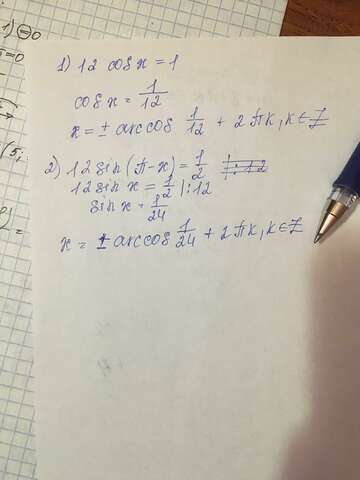 1) 12 cos x = 1
cos x = 1/12
x = ± arccos 1/12 + 2πk, k ∈ Z
2) 12 sin (π - x) = 1/2
12 sin x = 1/2 |: 12
sin x = 1/24
x = ± arccos 1/24 + 2πk, k ∈ Z